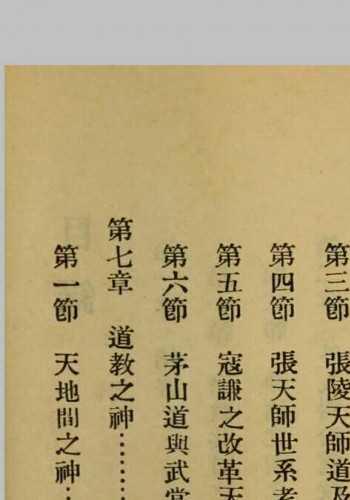 第三節 張陵天師道及
第四節 張天師世系考
第五節 寇謙之改革天
第六節 茅山道與武當
第七章 道教之神………
第一節 天地間之神…